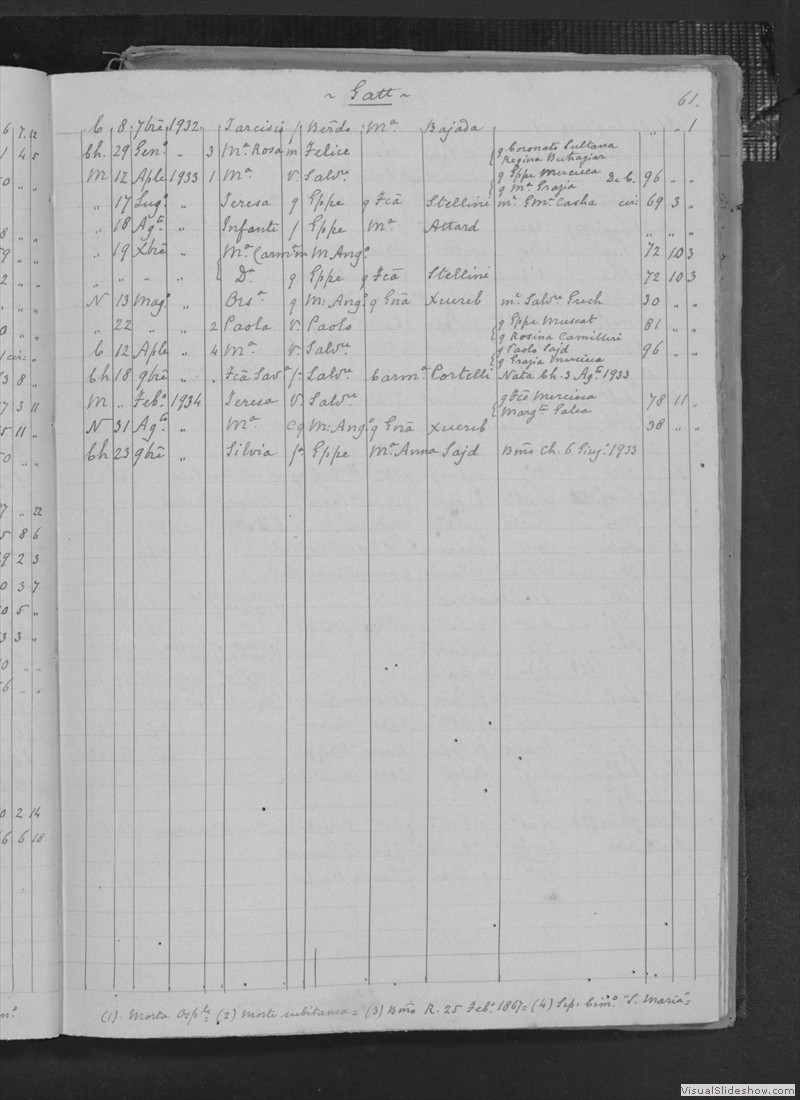 ~ Gatt ~
61.
C 8 7bre 1932 Tarcisio f Berdo Ma Bajada " " 1
Ch. 29 Geno " 3 Ma Rosa m Felice q Coronato Sultana
Regina Buhagiar
M 12 Aple 1933 1 Ma v. Salvre q Gppe Mercieca De C. 96 " "
q Ma Grazia
" 17 Lugo " Teresa q Gppe q Fca Stellini mo Gme Casha 69 3 "
" 18 Ago " Infante f Gppe Ma Attard " " "
" 19 Xbre " Ma Carma m M. Ango 72 10 3
" " " " Da q Gppe q Fca Stellini 72 10 3
N 13 Mago " Orsa q M: Ango q Gna Xuereb mo Salvre Grech 30 " "
" 22 " " 2 Paola v. Paolo q Gppe Muscat 81 " "
q Rosina Camilleri
C 12 Aple " 4 Ma v. Salvre q Paolo Sajd 96 " "
q Grazia Mercieca
Ch 18 9bre " " Fca Sava f. Salvre Carma Portelli Nata Ch. 3 Ago 1933
M " Febo 1934 Teresa v. Salvre q Fco Mercieca 78 11 "
Margta Galea
N 31 Ago " Ma cq M: Ango q Gna Xuereb 38 " "
Ch 23 9bre " Silvia fa Gppe Ma Anna Sajd Bmo Ch. 6 Giugo 1933
(1). Morta Osple = (2) Morte subitanea = (3) Bmo R. 25 Febo 1867 = (4) Sep: Cimo "S. Maria" =
VisualSlideshow.com